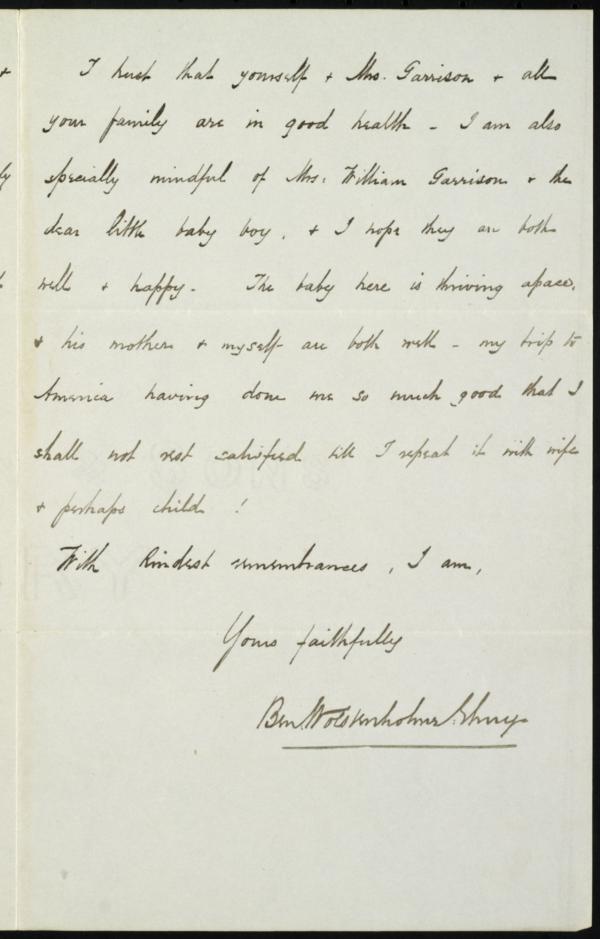 I trust that yourself & Mrs. Garrison & all
your family are in good health - I am also
specially mindful of Mrs. William Garrison & the
dear little baby boy, & I hope they are both
well & happy. The baby here is thriving apace,
& his mother & myself are both well - my trip to
America having done me so much good that I
shall not rest satisfied till I repeat it with wife
& perhaps child !
With kindest remembrances, I am,
Yours faithfully
Ben. Wolstenholme